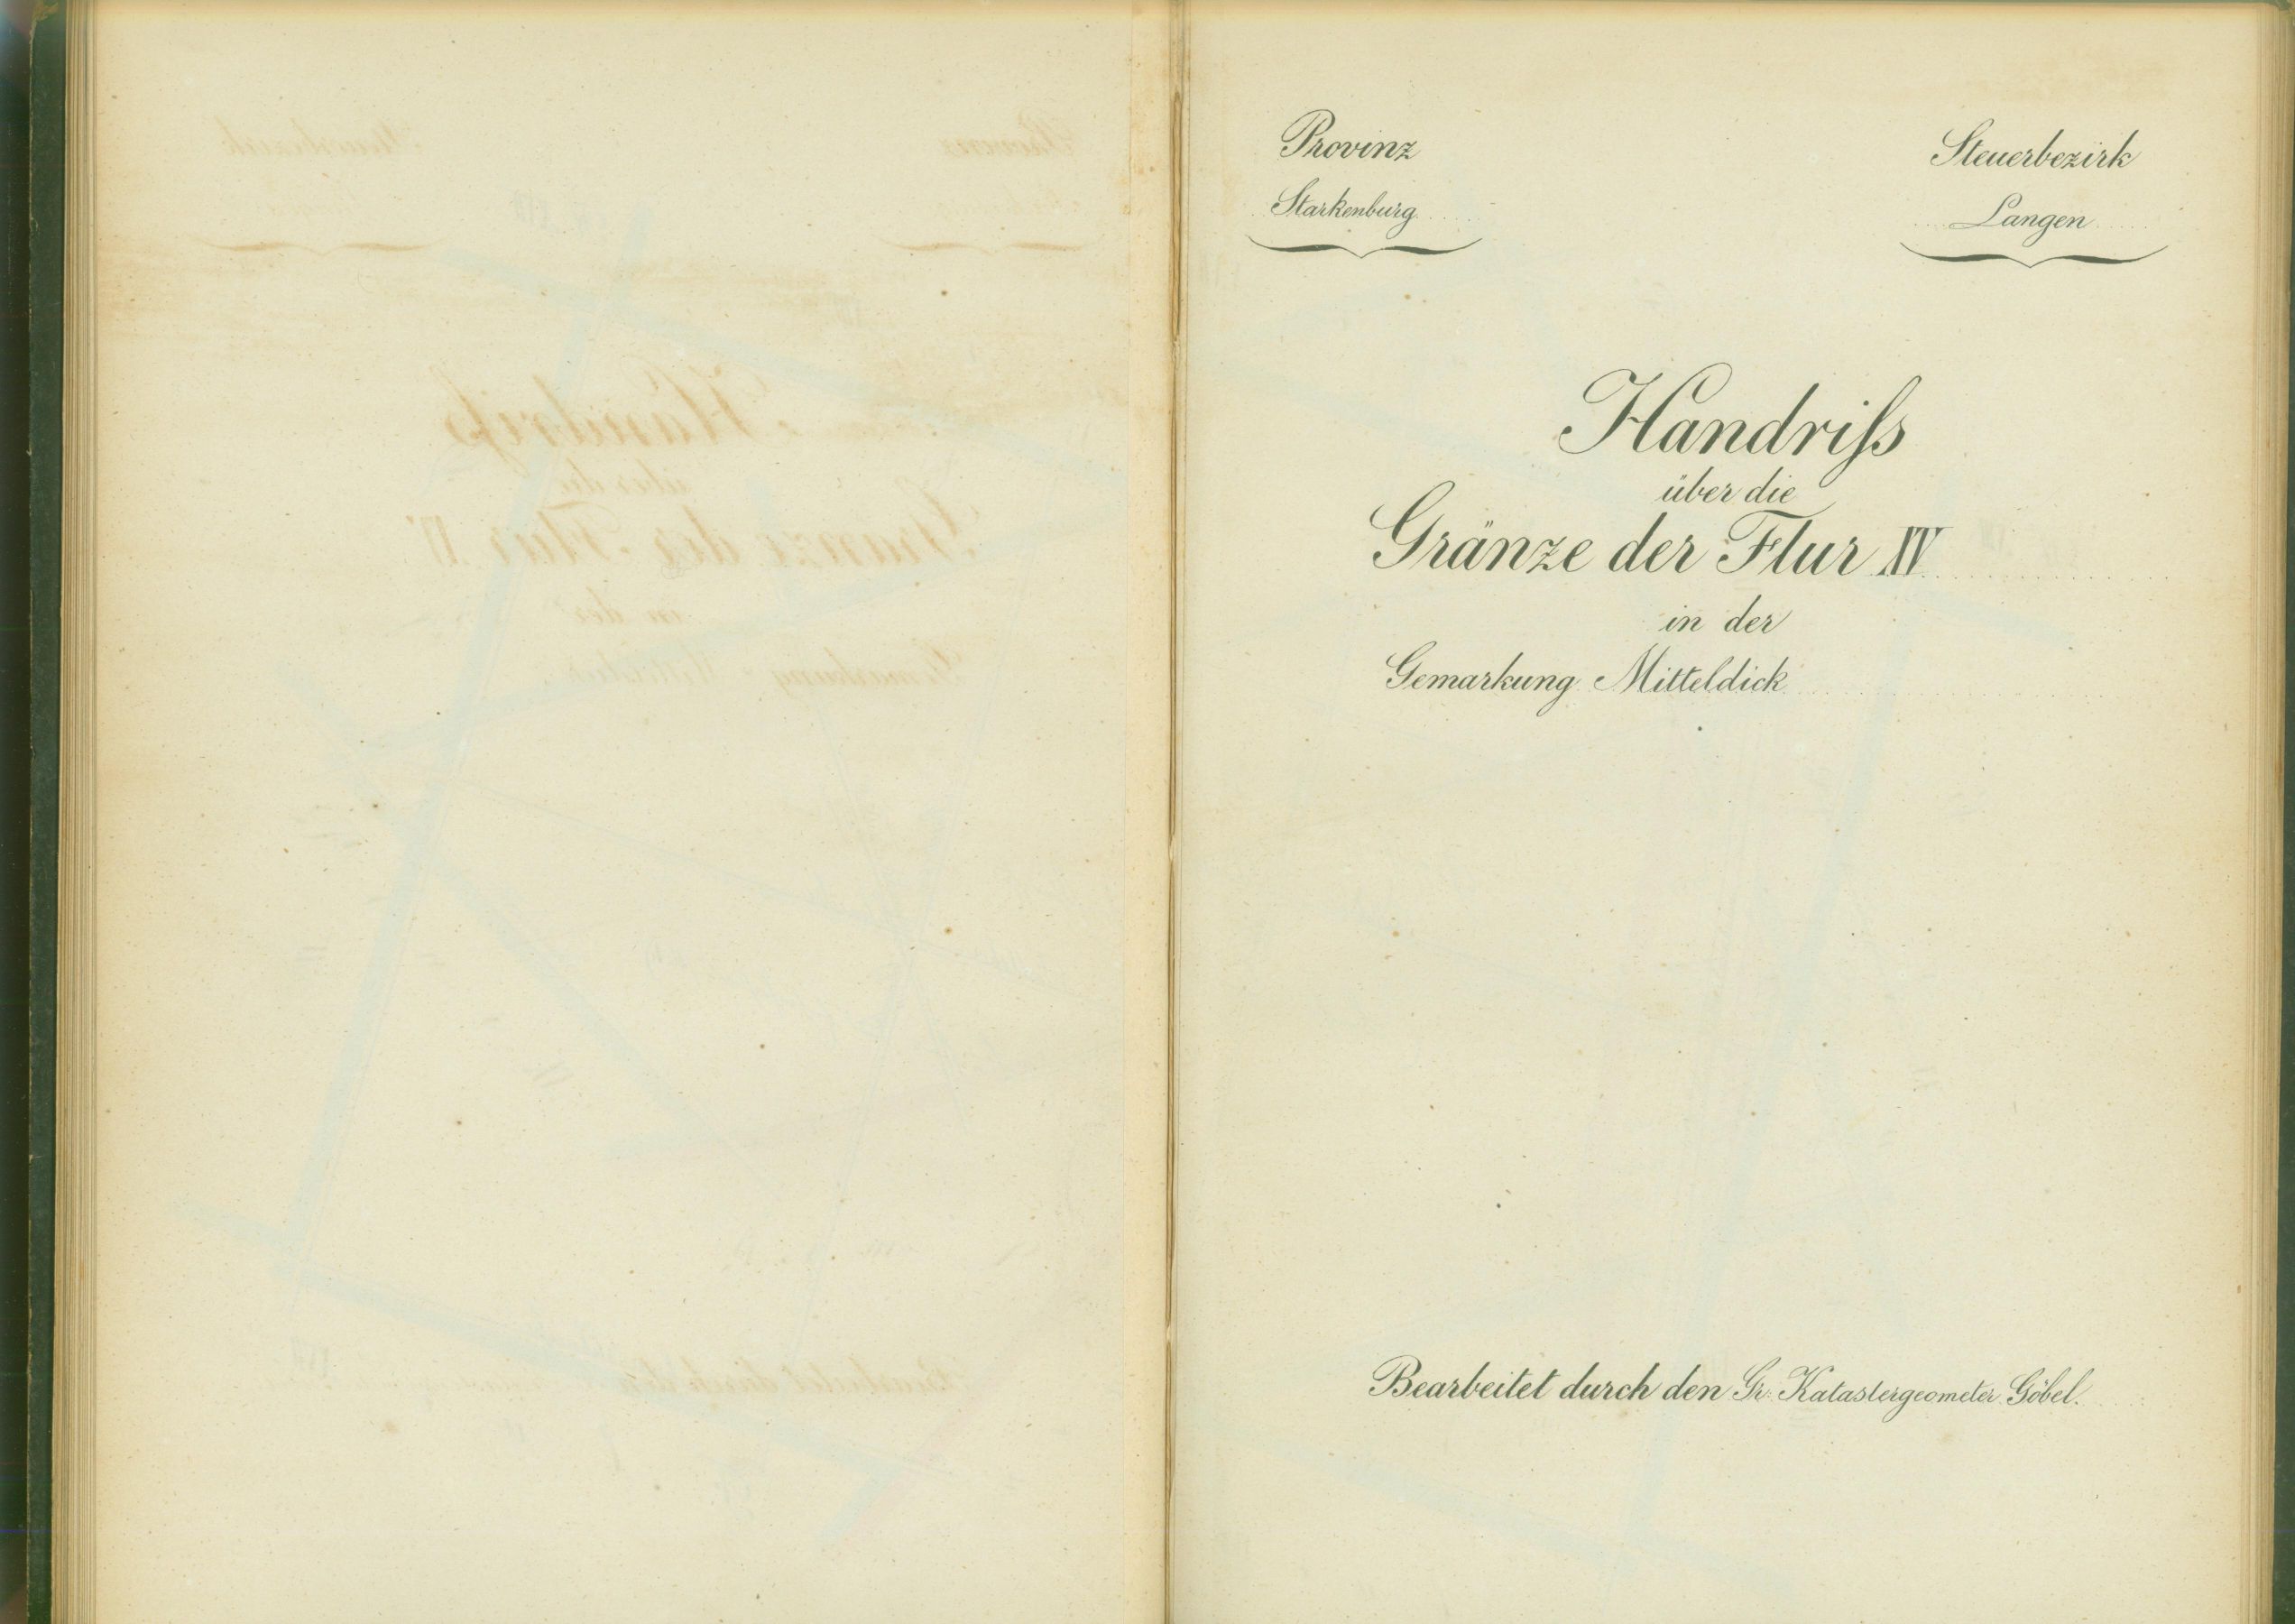 Provinz
Starkenburg
Steuerbezirk
Langen
Handriſs
über die
Gränze der Flur XV
in der
Gemarkung Mitteldick
Bearbeitet durch den Gr. Katastergeometer Göbel.